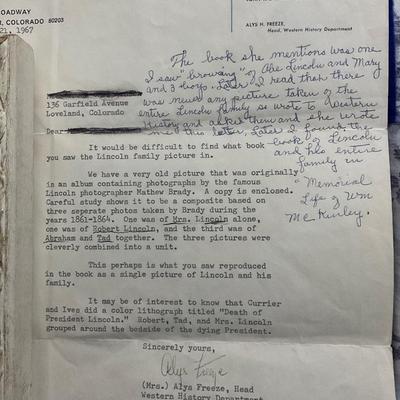 ROADWAY
R, COLORADO 80203
21, 1967
ALYS H. FREEZE,
Head, Western History Department
The book she mentions was one
I saw "browsing" of Abe Lincoln and Mary
and 3 boys. Later I read that there
was never any picture taken of the
entire Lincoln family so wrote to Western
History and asked them and she wrote
me this letter. Later I found the
book of Lincoln
and his entire
family in
"Memorial
Life of Wm
McKinley.
136 Garfield Avenue
Loveland, Colorado
Dear
It would be difficult to find what book
you saw the Lincoln family picture in.
We have a very old picture that was originally
in an album containing photographs by the famous
Lincoln photographer Mathew Brady. A copy is enclosed.
Careful study shows it to be a composite based on
three seperate photos taken by Brady during the
years 1861-1864. One was of Mrs. Lincoln alone,
one was of Robert Lincoln, and the third was of
Abraham and Tad together. The three pictures were
cleverly combined into a unit.
This perhaps is what you saw reproduced
in the book as a single picture of Lincoln and his
family.
It may be of interest to know that Currier
and Ives did a color lithograph titled "Death of
President Lincoln." Robert, Tad, and Mrs. Lincoln
grouped around the bedside of the dying President.
Sincerely yours,
Alys Freeze
(Mrs.) Alys Freeze, Head
Western History Department